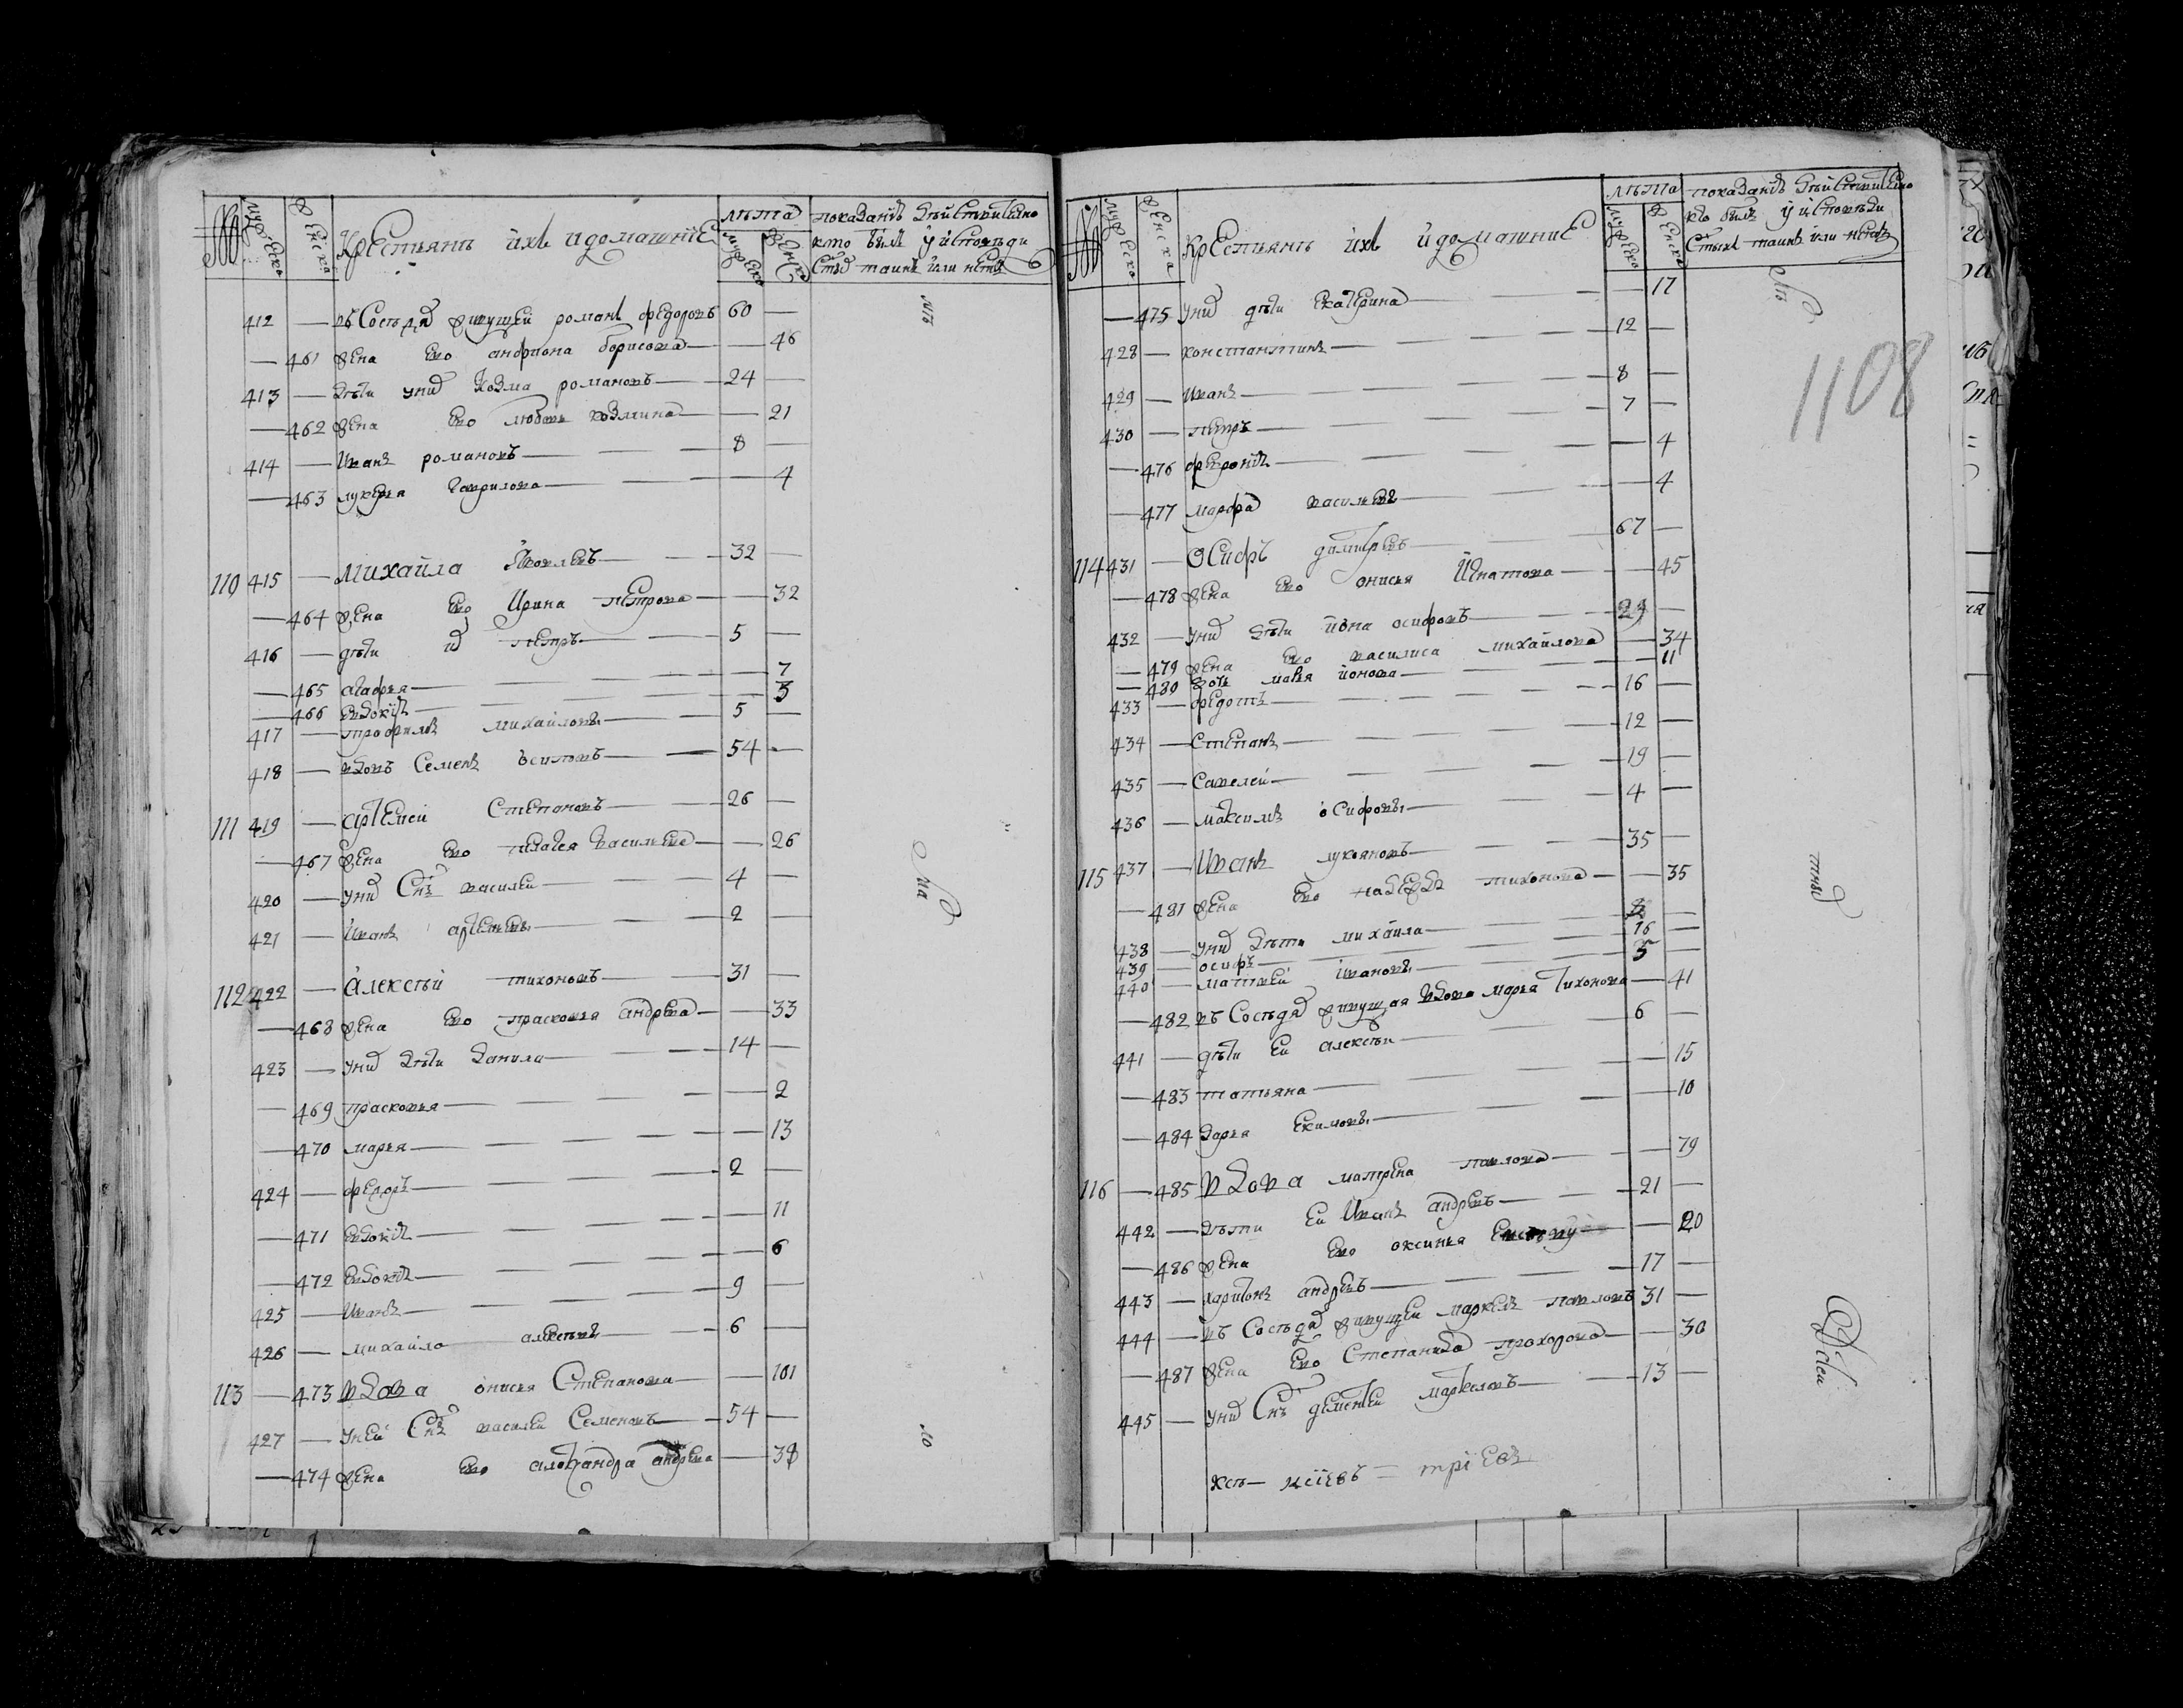 № мужеско женска Крестьянъ ихъ и домашние лѣта мужеско женско показание действително
кто былъ у исповѣди
стыхъ таинъ или нетъ
412 — въ соседяхъ живущей романъ федоровъ 60 —
— 461 жена ево андриона борисова — 46
413 — дѣти у нихъ козма романовъ 24 —
— 462 жена ево любовь козмина — 21
414 — иванъ романовъ 8 —
— 463 лукерья гаврилова — 4
110 415 — михайла яковлевъ 32 —
— 464 жена ево ирина петрова — 32
416 — дѣти их петръ 5 —
— 465 агафья — 7
— 466 евдокия — 3
417 — трофимъ михайловы 5 —
418 — вдовъ семенъ осиповъ 54 —
111 419 — артемей степановъ 26 —
— 467 жена ево пелагея васильева — 26
420 — у них снъ василей 4 —
421 — иванъ артемьевы 2 —
112 422 — алексѣй тихоновъ 31 —
— 468 жена ево прасковья андреева — 33
423 — у них дѣти данила 14 —
— 469 прасковья — 2
— 470 марья — 13
424 — федоръ 2 —
— 471 евдокия — 11
— 472 евдокия — 6
425 — иванъ 9 —
426 — михайло алексѣевы 6 —
113 — 473 вдова онисья степанова — 101
427 — у ней снъ василей семеновъ 54 —
— 474 жена ево александра андреева — 38
№ мужеско женска Крестьянъ ихъ и домашние лѣта мужеско женско показание действително
кто былъ у исповѣди
стыхъ таинъ или нетъ
1108
— 475 у них дѣти екатерина — 17
428 — константинъ 12 —
429 — иванъ 8 —
430 — петръ 7 —
— 476 феврония — 4
— 477 марфа васильевы — 4
114 431 — осифъ димитревъ 67 —
— 478 жена ево онисья игнатова — 45
432 — у них дѣти иона осифовъ 29 —
— 479 жена ево василиса михайлова — 34
— 480 дочь мавья ионова — 11
433 — федотъ 16 —
434 — степанъ 12 —
435 — савелей 19 —
436 — максимъ осифовы 4 —
115 437 — иванъ лукяновъ 35 —
— 481 жена ево надежда тихонова — 35
438 — у них дѣти михайла —
439 — осифъ 16 —
440 — матвей ивановы 5 —
— 482 въ соседях живущая вдова марья тихонова — 41
441 — дѣти ей алексѣй 6 —
— 483 татьяна — 15
— 484 дарья екимовы — 10
116 — 485 вдова матрена павлова — 79
442 — дѣти ей иванъ андреевъ 21 —
— 486 жена ево оксинья — 20
443 — харитонъ андреевъ 17 —
444 — въ соседях живущей маркелъ павловъ 31 —
— 487 жена ево степанида прохорова — 30
445 — у них снъ дементей маркеловъ 13 —